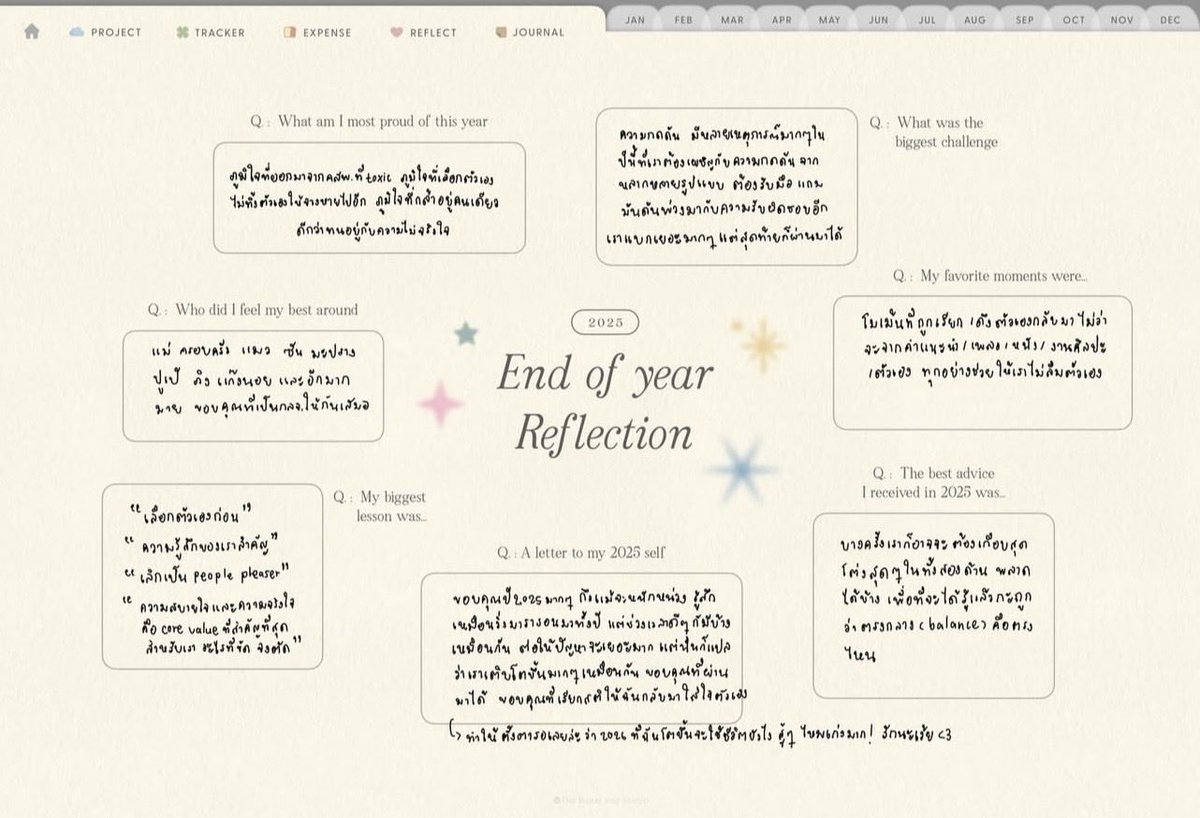 PROJECT
TRACKER
EXPENSE
REFLECT
JOURNAL
JAN
FEB
MAR
APR
MAY
JUN
JUL
AUG
SEP
OCT
NOV
DEC
Q. : What am I most proud of this year
ภูมิใจที่ออกมาจากคสพ.ที่ toxic ภูมิใจที่เลือกตัวเอง
ไม่ทิ้งตัวเองให้จางหายไปอีก ภูมิใจที่กล้าอยู่คนเดียว
ดีกว่าทนอยู่กับความไม่จริงใจ
Q. : What was the
biggest challenge
ความกดดัน มีหลายเหตุการณ์มากๆใน
ปีนี้ที่เราต้องเผชิญกับความกดดัน จาก
หลากหลายรูปแบบ ต้องรับมือ แถม
มันดันพ่วงมากับความรับผิดชอบอีก
เราแบกเยอะมากๆ แต่สุดท้ายก็ผ่านมาได้
Q. : My favorite moments were...
โมเม้นที่ถูกเรียก / ดึงตัวเองกลับมา ไม่ว่า
จะจากคำแนะนำ / เพลง / หนัง / งานศิลปะ
/ ตัวเอง ทุกอย่างช่วยให้เราไม่ลืมตัวเอง
Q. : Who did I feel my best around
แม่ ครอบครัว แมว ซัน มะปราง
ปูเป้ คิง แก๊งนอย และอีกมาก
มาย ขอบคุณที่เป็นกลจ.ให้กันเสมอ
2025
End of year
Reflection
Q. : My biggest
lesson was...
"เลือกตัวเองก่อน"
"ความรู้สึกของเราสำคัญ"
"เลิกเป็น people pleaser"
"ความสบายใจและความจริงใจ
คือ core value ที่สำคัญที่สุด
สำหรับเรา อะไรที่ขัด จงตัด"
Q. : A letter to my 2025 self
ขอบคุณปี 2025 มากๆ ถึงแม้จะหนักหน่วง รู้สึก
เหมือนวิ่งมาราธอนมาทั้งปี แต่ช่วงเวลาดีๆ ก็มีบ้าง
เหมือนกัน ต่อให้ปัญหาจะเยอะมาก แต่มันก็แปล
ว่าเราเติบโตขึ้นมากๆเหมือนกัน ขอบคุณที่ผ่าน
มาได้ ขอบคุณที่เรียกสติให้ฉันกลับมาใส่ใจตัวเอง
ทำให้ตั้งตารอเลยล่ะ ว่า 2026 ที่ฉันโตขึ้นจะใช้ชีวิตยังไง สู้ๆ ไบพเก่งมาก! รักนะเว้ย <3
Q. : The best advice
I received in 2025 was...
บางครั้งเราก็อาจจะต้องเกือบสุด
โต่งสุดๆในทั้งสองด้าน พลาด
ได้บ้าง เพื่อที่จะได้รู้แล้วกะถูก
ว่าตรงกลาง (balance) คือตรง
ไหน